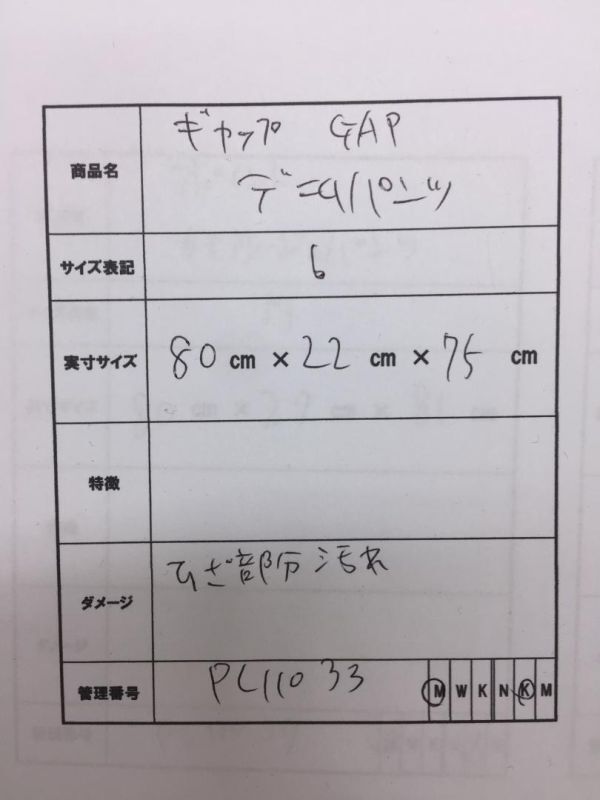 商品名 ギャップ GAP
デニムパンツ
サイズ表記 6
実寸サイズ 80 cm × 22 cm × 75 cm
特徴
ダメージ ひざ部分汚れ
管理番号 PL11033 M W K N K M